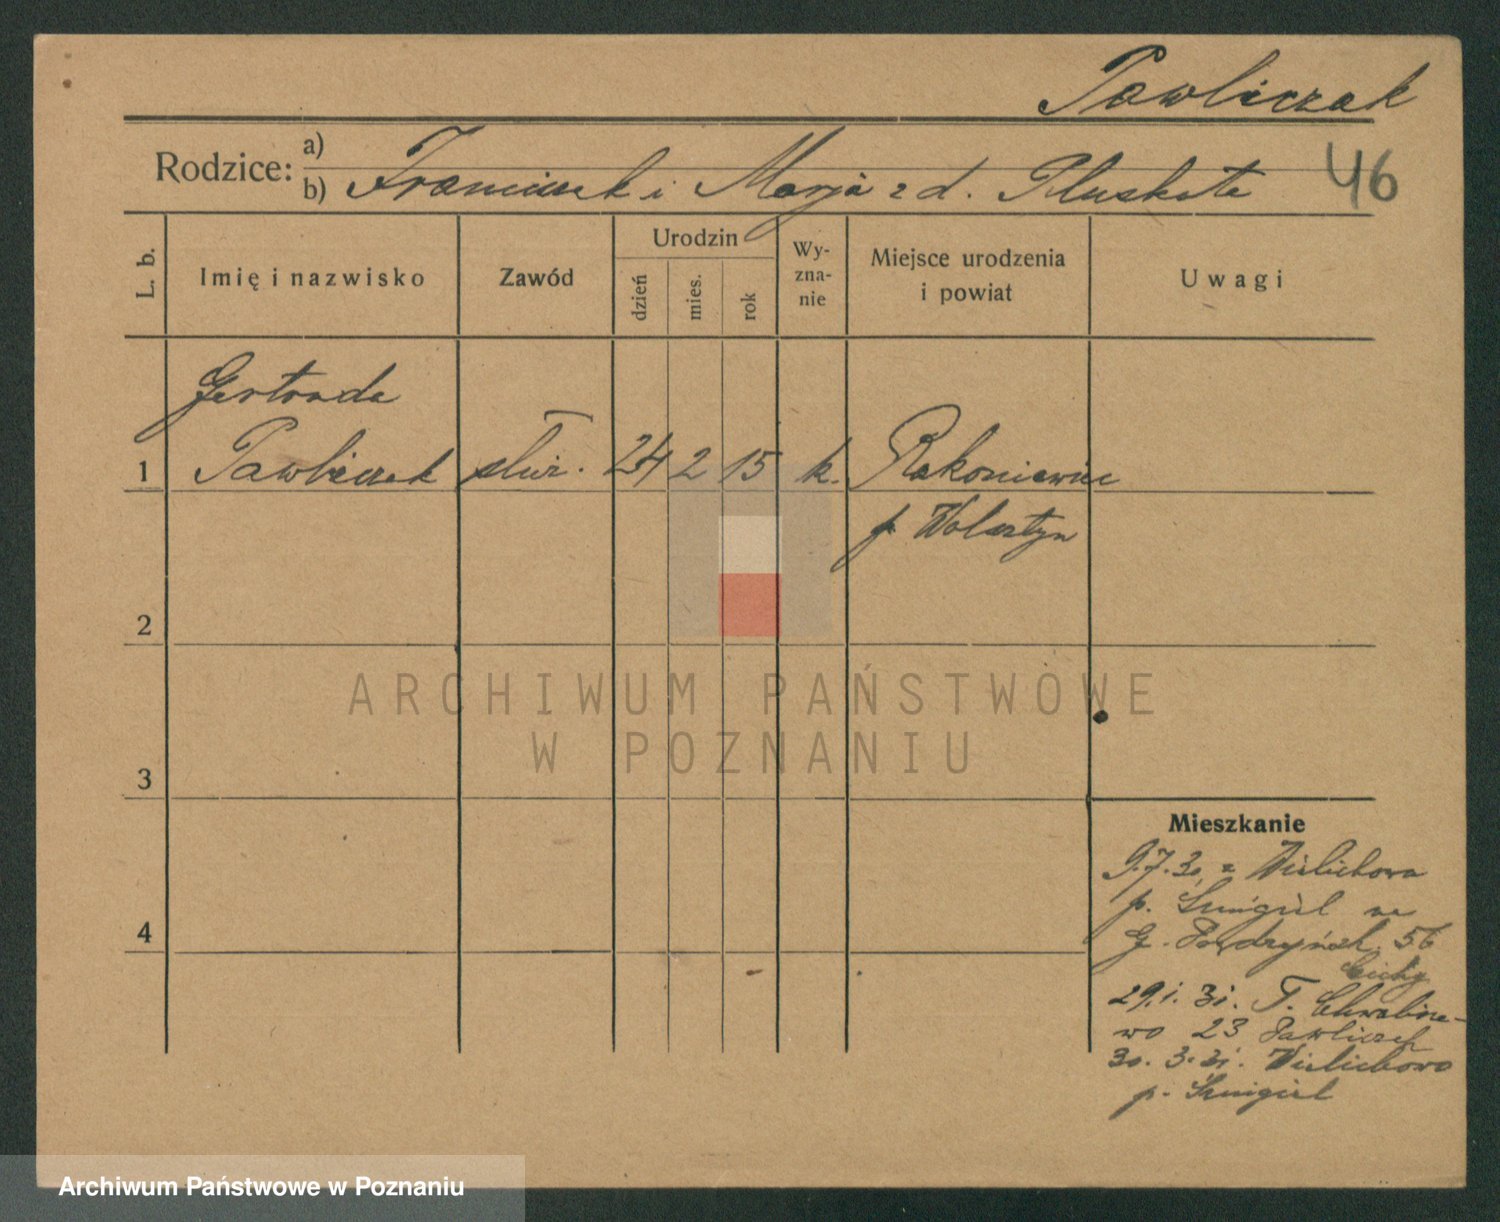 Pawliczak
Rodzice:
a)
b) Franciszek i Marja z d. Pluskota
46
L. b.
Imię i nazwisko
Zawód
Urodzin
dzień
mies.
rok
Wy-
zna-
nie
Miejsce urodzenia
i powiat
Uwagi
Gertruda
1 Pawliczak służ. 24 2 15 k. Rakoniewice
p. Wolsztyn
2
3
4
ARCHIWUM PAŃSTWOWE
W POZNANIU
Mieszkanie
9.7.30. z Wielichowa
p. Śmigiel na
G. 56
Cichy
29.1.31. T. Chwalisze-
wo 23 Pawliczak
30.3.31. Wielichowo
p. Śmigiel
Archiwum Państwowe w Poznaniu